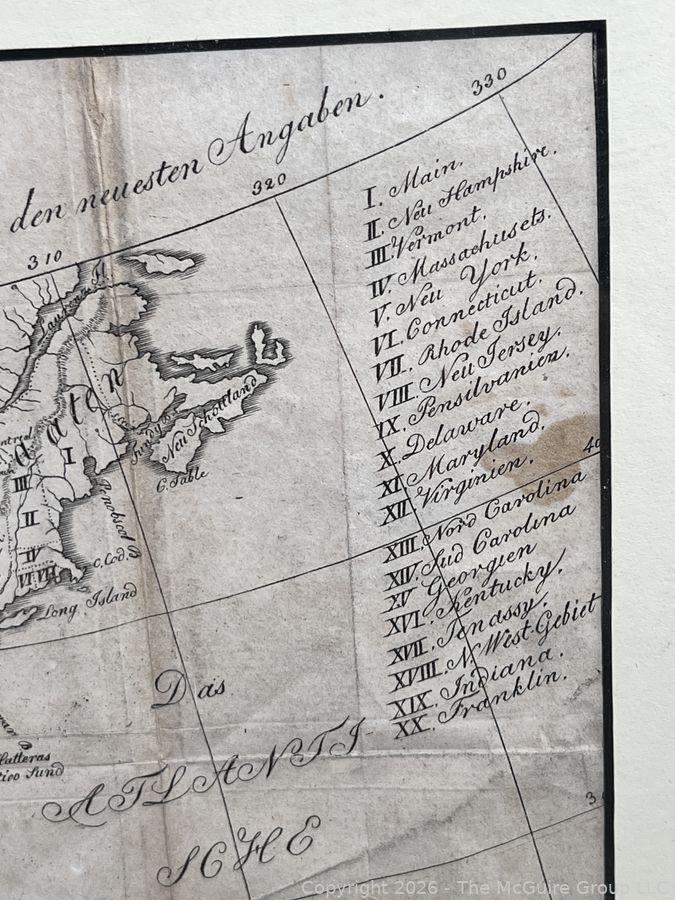 den neuesten Angaben.
330
320
310
I. Main.
II. Neu Hampshire.
III. Vermont.
IV. Massachusets.
V. Neu York.
VI. Connecticut.
VII. Rhode Island.
VIII. Neu Jersey.
IX. Pensilvanien.
X. Delaware.
XI. Maryland.
XII. Virginien.
XIII. Nord Carolina
XIV. Sud Carolina
XV Georgien
XVI. Kentucky.
XVII. Tenassy.
XVIII. N. West-Gebiet
XIX. Indiana.
XX. Franklin.
Neu Schottland
C. Sable
aten
I
III
II
IV
VI VII
Penobscot B
C. Cod.
Long Island
40
Das
Hatteras
Sund
ATLANTI-
SCHE
3
Copyright 2026 - The McGuire Group LLC